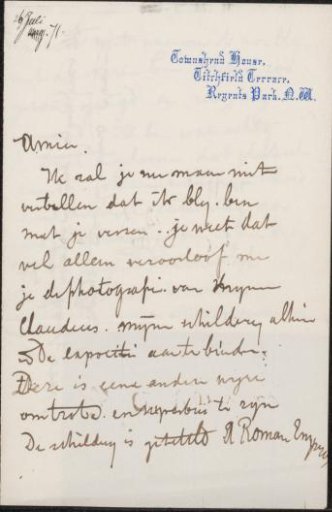 Juli
71.
Townshend House.
Titchfield Terrace.
Regents Park. N.W.
Amice.
Ik zal je nu maar niet
vertellen dat ik bly. ben
met je verzen.. je weet dat
wel alleen veroorloof me
je de photografie van mynen
Claudius. myne schildery alhier
De expositie aan te bieden.
Deze is eene andere wyze
om trots. en te zyn
De schildery is getiteld A Roman Emp